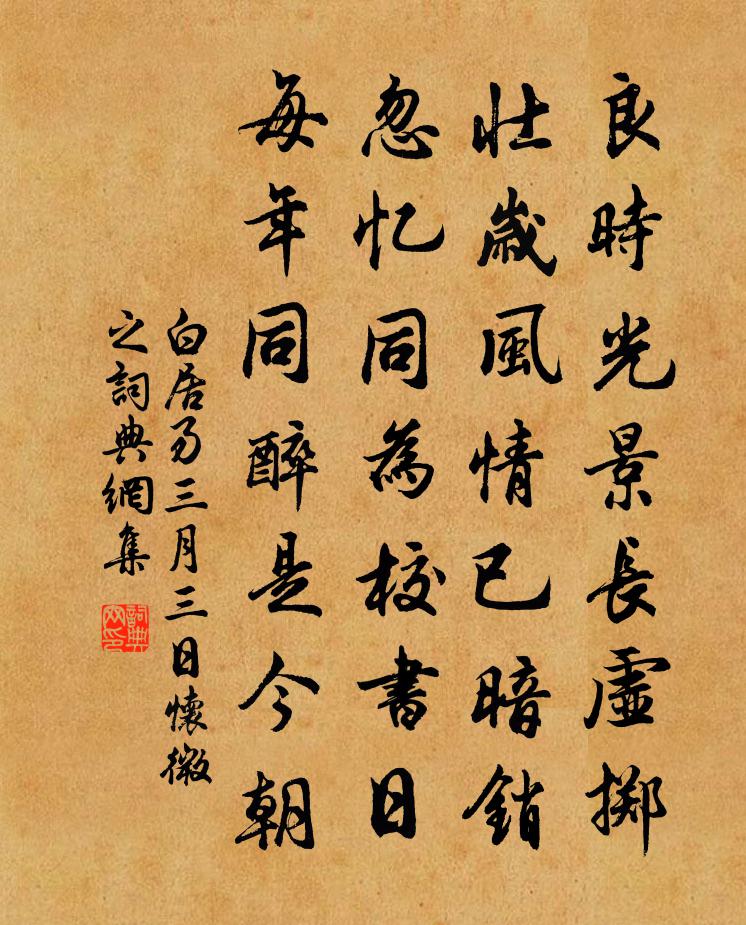 良時光景長虛擲
壯歲風情已暗銷
忽忆同為校書日
每年同醉是今朝
白居易三月三日懷微
之詞典網集
詞典網印